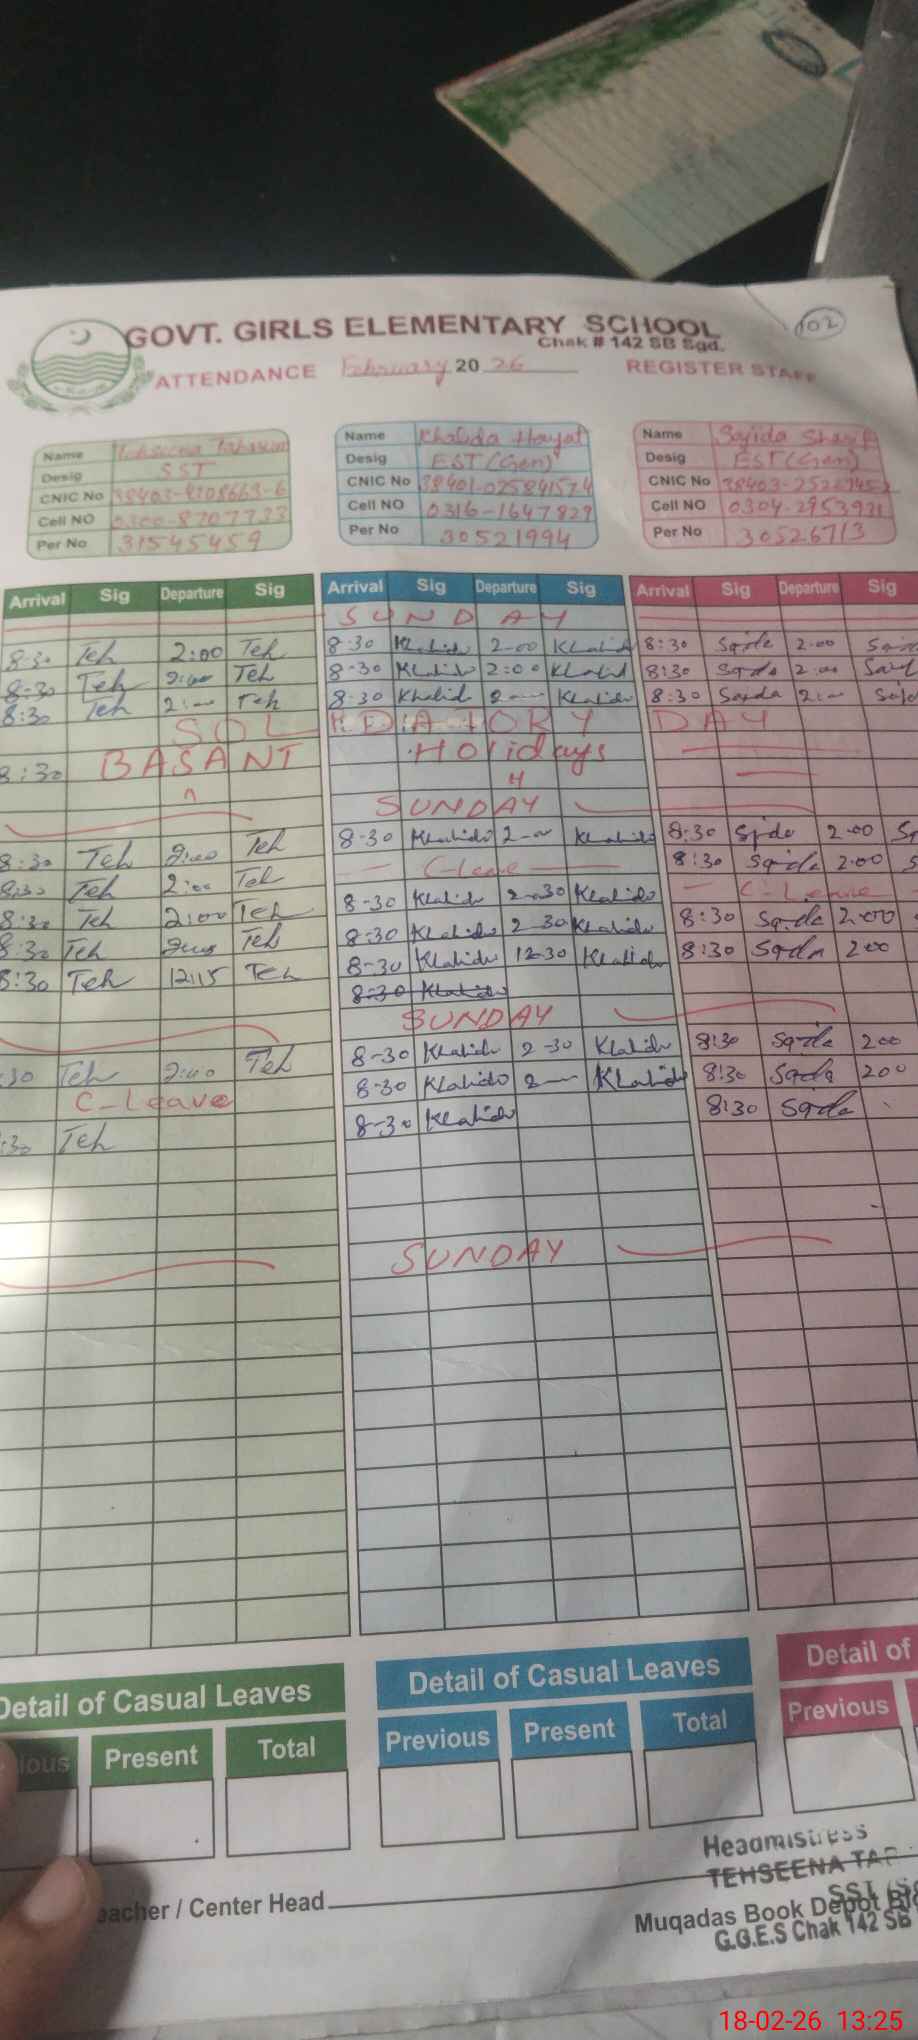 GOVT. GIRLS ELEMENTARY SCHOOL
Chak # 142 SB Sgd.
102
ATTENDANCE February 20 26 REGISTER STAFF
Name Tehseena Tabasum
Desig SST
CNIC No
Cell NO 0300-8707733
Per No 31545459
Name Khalida Hayat
Desig EST (Gen)
CNIC No 38401-025841574
Cell NO 0316-1647829
Per No 30521994
Name Sajida Sharif
Desig EST (Gen)
CNIC No
Cell NO
Per No 30526713
Arrival Sig Departure Sig Arrival Sig Departure Sig Arrival Sig Departure Sig
SUNDAY
8:30 Teh 2:00 Teh 8-30 Khalida 2-00 Khalida 8:30 Sajda 2.00
8-30 Teh 2:00 Teh 8-30 Khalida 2:00 Khalid 8:30 Sajda 2:00
8:30 Teh 2:— Teh 8-30 Khalid 2— Khalida 8:30 Sajda 2:—
SOLIEDIATORY DAY
8:30 BASANT Holidays
H
SUNDAY
8:30 Teh 2:00 Teh 8-30 Khalida 2-00 Khalida 8:30 Sajda 2.00
8:30 Teh 2:00 Teh — C-Leave — 8:30 Sajida 2.00
8:30 Teh 2:00 Teh 8-30 Khalida 2-30 Khalida — C-Leave —
8:30 Teh 2:00 Teh 8-30 Khalida 2-30 Khalida 8:30 Sajda 2-00
8:30 Teh 12:15 Teh 8-30 Khalida 12-30 Khalida 8:30 Sajda 200
8-30 Khalida
SUNDAY
:30 Teh 2:00 Teh 8-30 Khalida 2-30 Khalida 8:30 Sajda 200
C-Leave 8-30 Khalida 2— Khalida 8:30 Sajda 200
:30 Teh 8-30 Khalida 8:30 Sajda
SUNDAY
Detail of Casual Leaves
Present Total
Detail of Casual Leaves
Previous Present Total
Detail of
Previous
eacher / Center Head
Headmistress
TEHSEENA TA
SST
Muqadas Book Depot
G.G.E.S Chak 142 SB
18-02-26 13:25